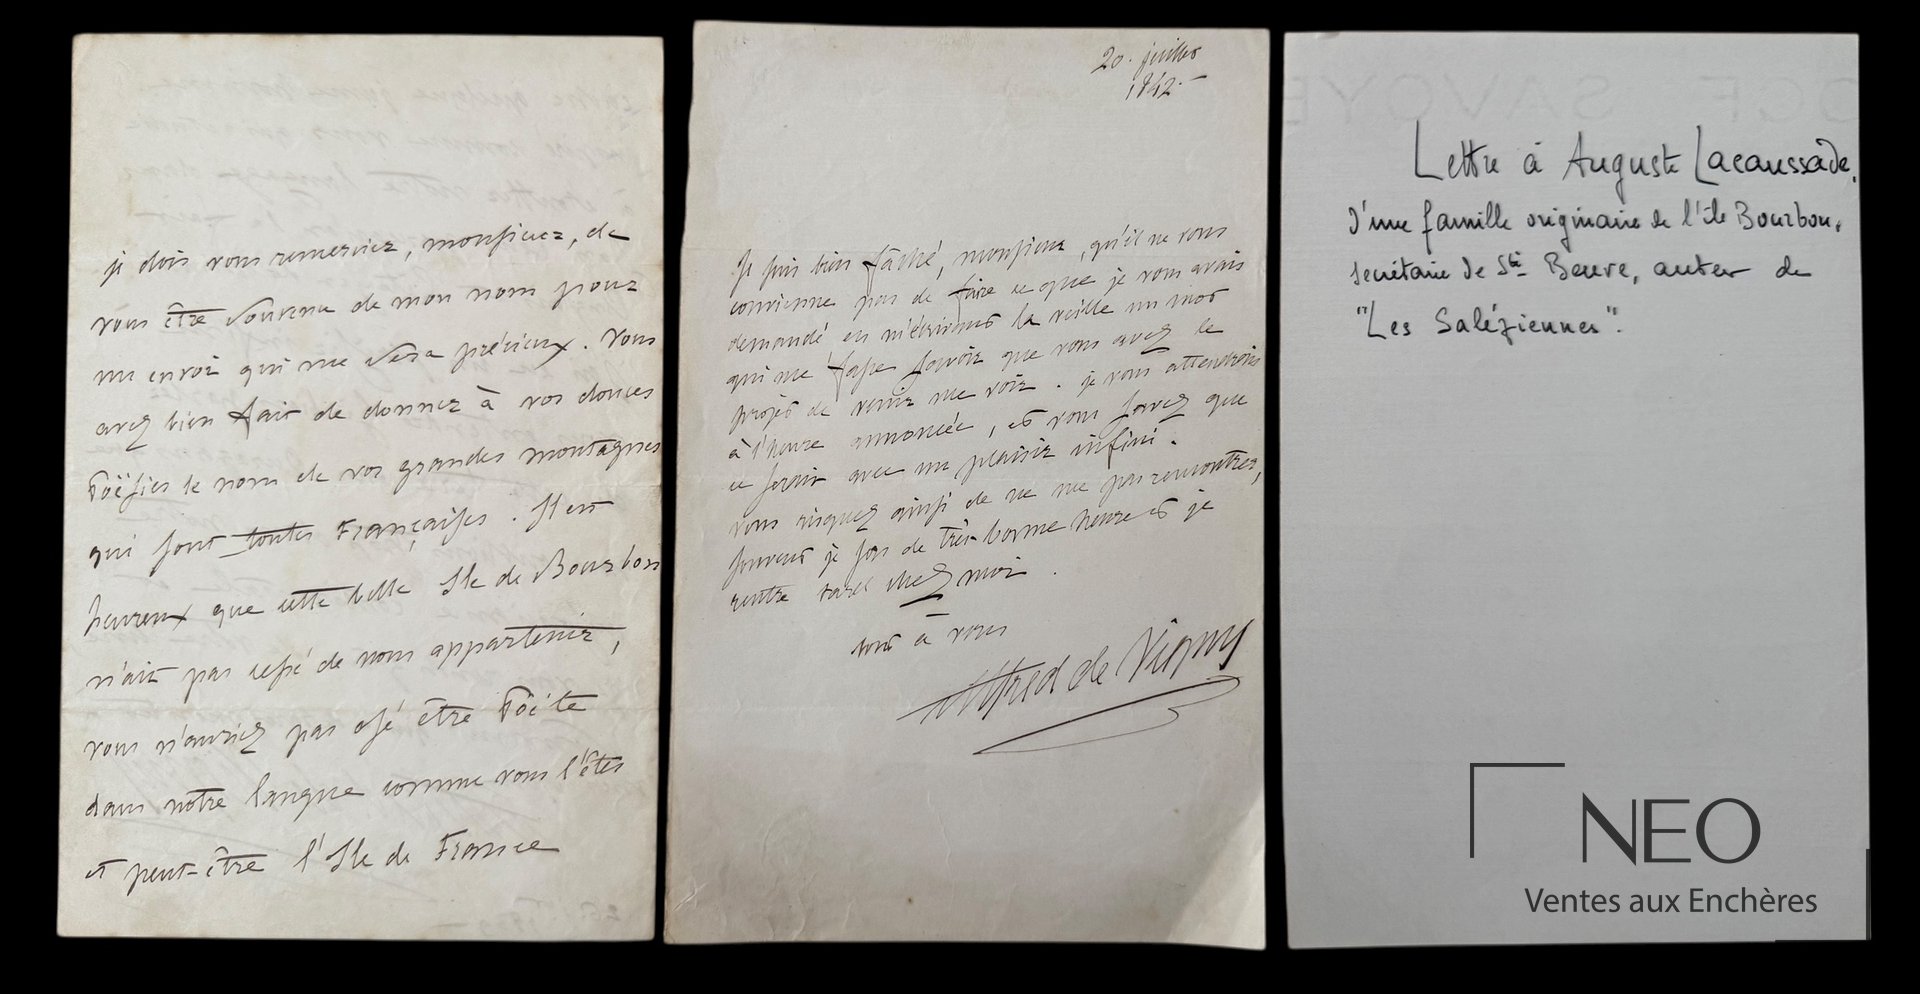 je dois vous remercier, monsieur, de
vous être souvenu de mon nom pour
un envoi qui me sera précieux. Vous
avez bien fait de donner à vos douces
Poësies le nom de vos grandes montagnes
qui sont toutes Françaises. Il est
heureux que cette belle Ile de Bourbon
n'ait pas cessé de nous appartenir,
vous n'auriez pas osé être Poëte
dans notre langue comme vous l'êtes
et peut-être l'Ile de France
20. juillet
1842.
Je suis bien fâché, monsieur, qu'il ne vous
convienne pas de faire ce que je vous avais
demandé en m'écrivant la veille un mot
qui me fasse savoir que vous avez le
projet de venir me voir. je vous attendrais
à l'heure annoncée, et vous savez que
ce serait avec un plaisir infini.
vous risquez ainsi de ne me pas rencontrer,
souvent je sors de très bonne heure et je
rentre tard chez moi.
tout à vous
Alfred de Vigny
OGF SAVOYE
Lettre à Auguste Lacaussade.
d'une famille originaire de l'île Bourbon.
secrétaire de Ste Beuve, auteur de
"Les Salaziennes".
NEO
Ventes aux Enchères